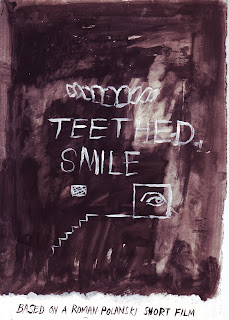 TEETHED
SMILE
BASED ON A ROMAN POLANSKI SHORT FILM